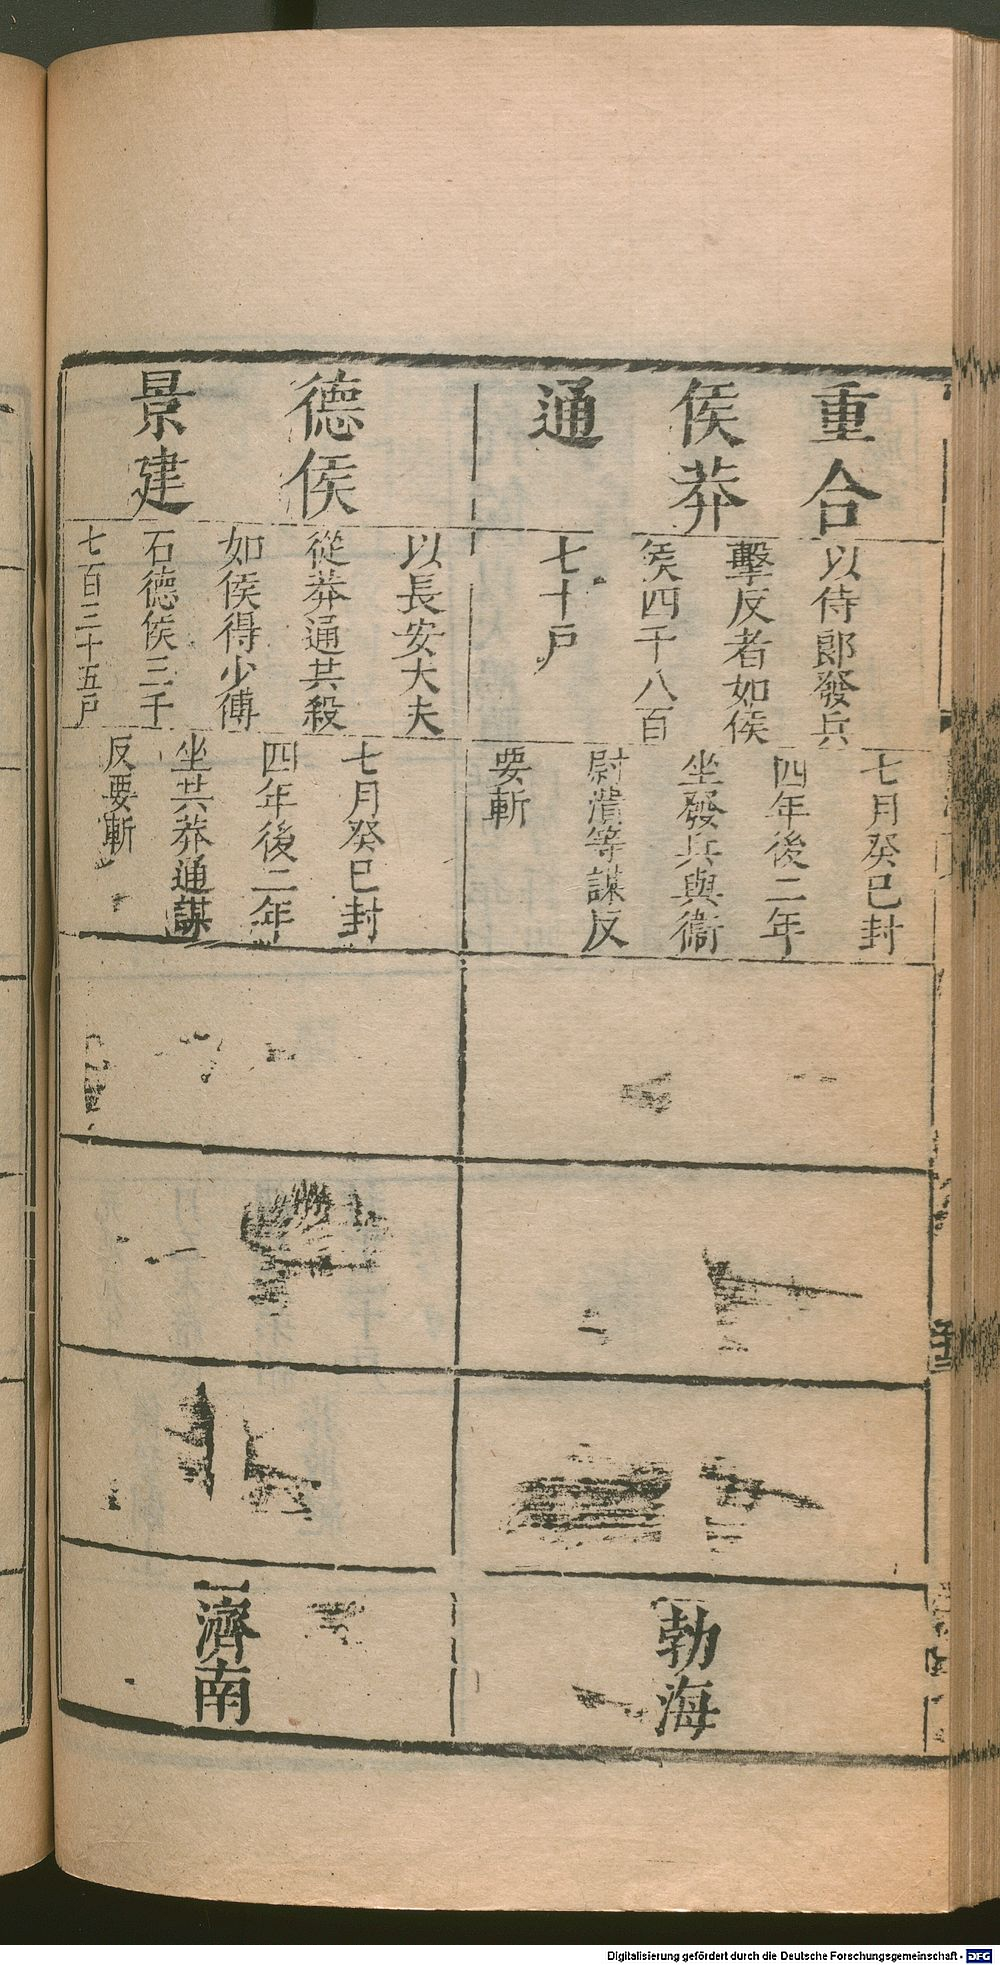 重合
侯莽
通
以侍郎發兵
擊反者如侯
侯四千八百
七十戶
七月癸巳封
四年後二年
坐發兵與衞
尉潰等謀反
要斬
勃海
德侯
景建
以長安大夫
從莽通共殺
如侯得少傅
石德侯三千
七百三十五戶
七月癸巳封
四年後二年
坐共莽通謀
反要斬
濟南
Digitalisierung gefördert durch die Deutsche Forschungsgemeinschaft - DFG